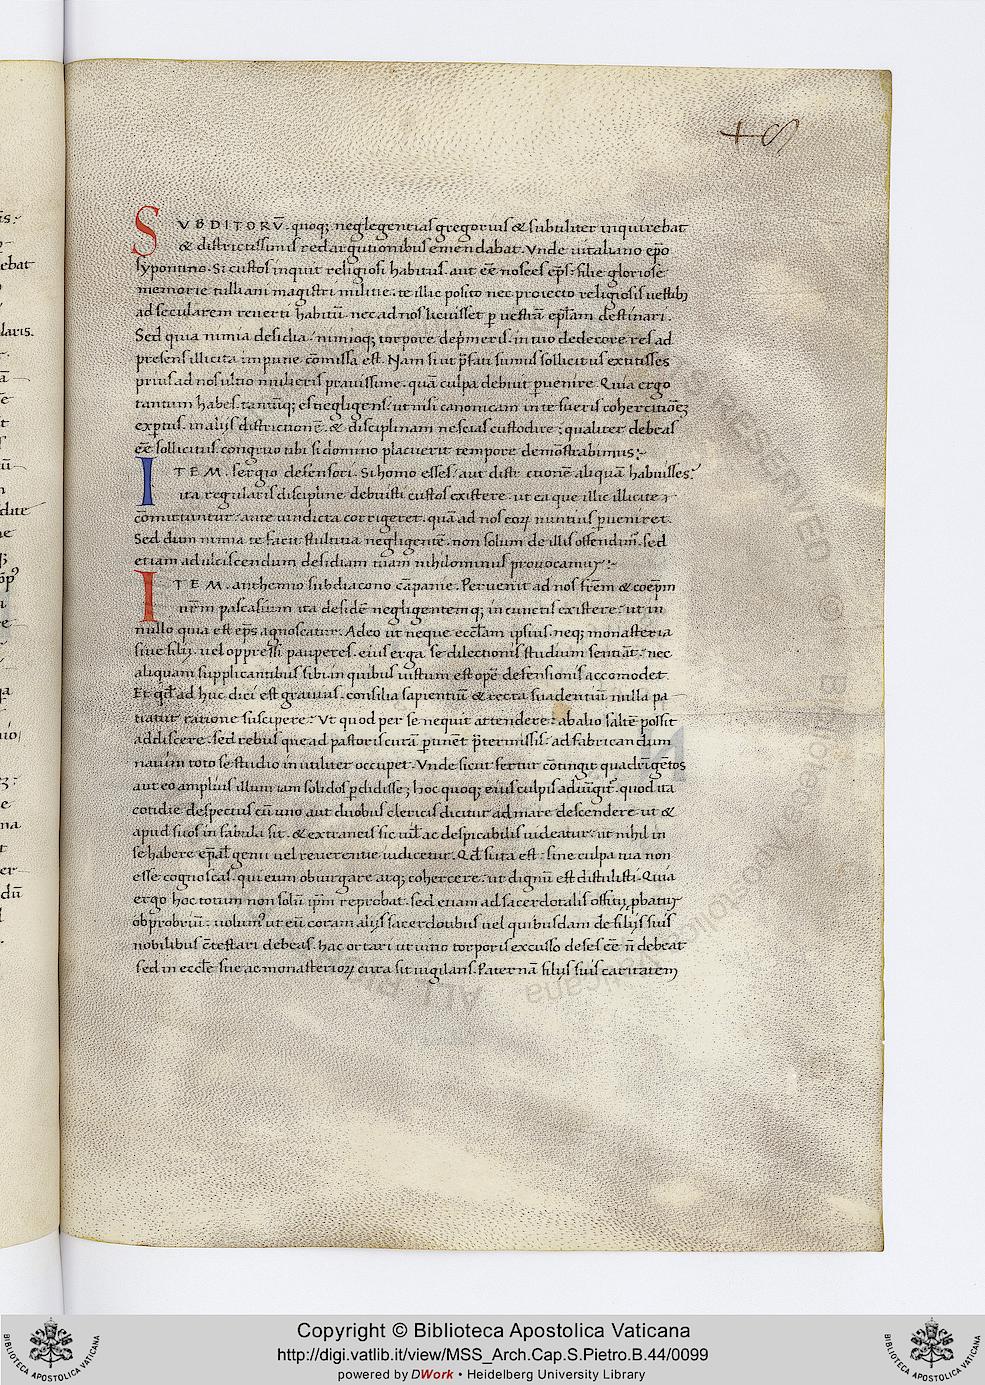 SVBDITORV̄. quoq; neglegentias gregorius & subtiliter inquirebat
& districtissimis redargutionibus emendabat. Vnde uitaliano ep̄o
sypontino. Si custos inquit religiosi habitus. aut eē nosces ep̄s: filie gloriose
memorie tulliani magistri militie. te illic posito nec proiecto religiosis uestib;
ad secularem reuerti habitū. nec ad nos licuisset p uestrā ep̄lam destinari.
Sed quia nimia desidia. nimioq; torpore dep̄meris. in tuo dedecore res ad
presens illicita impune cōmissa est. Nam si ut p̄fati sumus sollicitus extitisses
prius ad nos ultio mulieris prauissime. quā culpa debuit puenire. Quia ergo
tantum habes. tantūq; es negligens. ut nisi canonicam in te fueris cohercitionē
exptus. in alijs districtionē. & disciplinam nescias custodire: qualiter debeas
eē sollicitus. congruo tibi si domino placuerit tempore demōstrabimus:
ITEM. sergio defensori. Si homo esses. aut districtionē aliquā habuisses.
ita regularis discipline debuisti custos existere. ut ea que illic illicite
cōmittuntur. ante uindicta corrigeret. quā ad nos eorum nuntius pueniret.
Sed dum nimia te facit stultitia negligentē. non solum de illis offendimur. sed
etiam ad ulciscendum desidiam tuam nihilominus prouocamur:
ITEM. anthemio subdiacono cāpanie. Peruenit ad nos fr̄em & coep̄m
nr̄m pascasium ita desidē negligentemq; in cunctis existere. ut in
nullo quia est ep̄s agnoscatur. Adeo ut neque eccl̄am ipsius. neq; monasteria
siue filij. uel oppressi pauperes. eius erga se dilectionis studium sentiāt. nec
aliquam supplicantibus sibi in quibus iustum est opē defensionis accomodet.
Et qd̄ ad huc dici est grauius. consilia sapientiū & recta suadentiū nulla pa
tiatur ratione suscipere. Vt quod per se nequit attendere. ab alio saltē possit
addiscere. sed rebus que ad pastoris curā ptinēt p̄termissis. ad fabricandum
nauim toto se studio inutiliter occupet. Vnde sicut fertur cōtingit quadrīgētos
aut eo amplius illum iam solidos pdidisse; hoc quoq; eius culpis adiūgit. quod ita
cotidie despectus cū uno aut duobus clericis dicitur ad mare descendere. ut &
apud suos in fabula sit. & extraneis sic uil̄ ac despicabilis uideatur. ut nihil in
se habere ep̄al̄ genii uel reuerentie iudicetur. Qd̄ si ita est. sine culpa tua non
esse cognoscas. qui eum obiurgare atq; cohercere. ut dignū est distulisti. Quia
ergo hoc totum non solū ip̄m reprobat. sed etiam ad sacerdotalis officij pbatur
obprobriū. uolumus ut eū coram alijs sacerdotibus uel quibusdam de filijs suis
nobilibus cōtestari debeas. hac ortari ut uitio torporis excusso deses eē n̄ debeat
sed in eccl̄e sue ac monasteriorum cura sit uigilans. Paternā filijs suis caritatem
Copyright © Biblioteca Apostolica Vaticana
http://digi.vatlib.it/view/MSS_Arch.Cap.S.Pietro.B.44/0099
powered by DWork • Heidelberg University Library